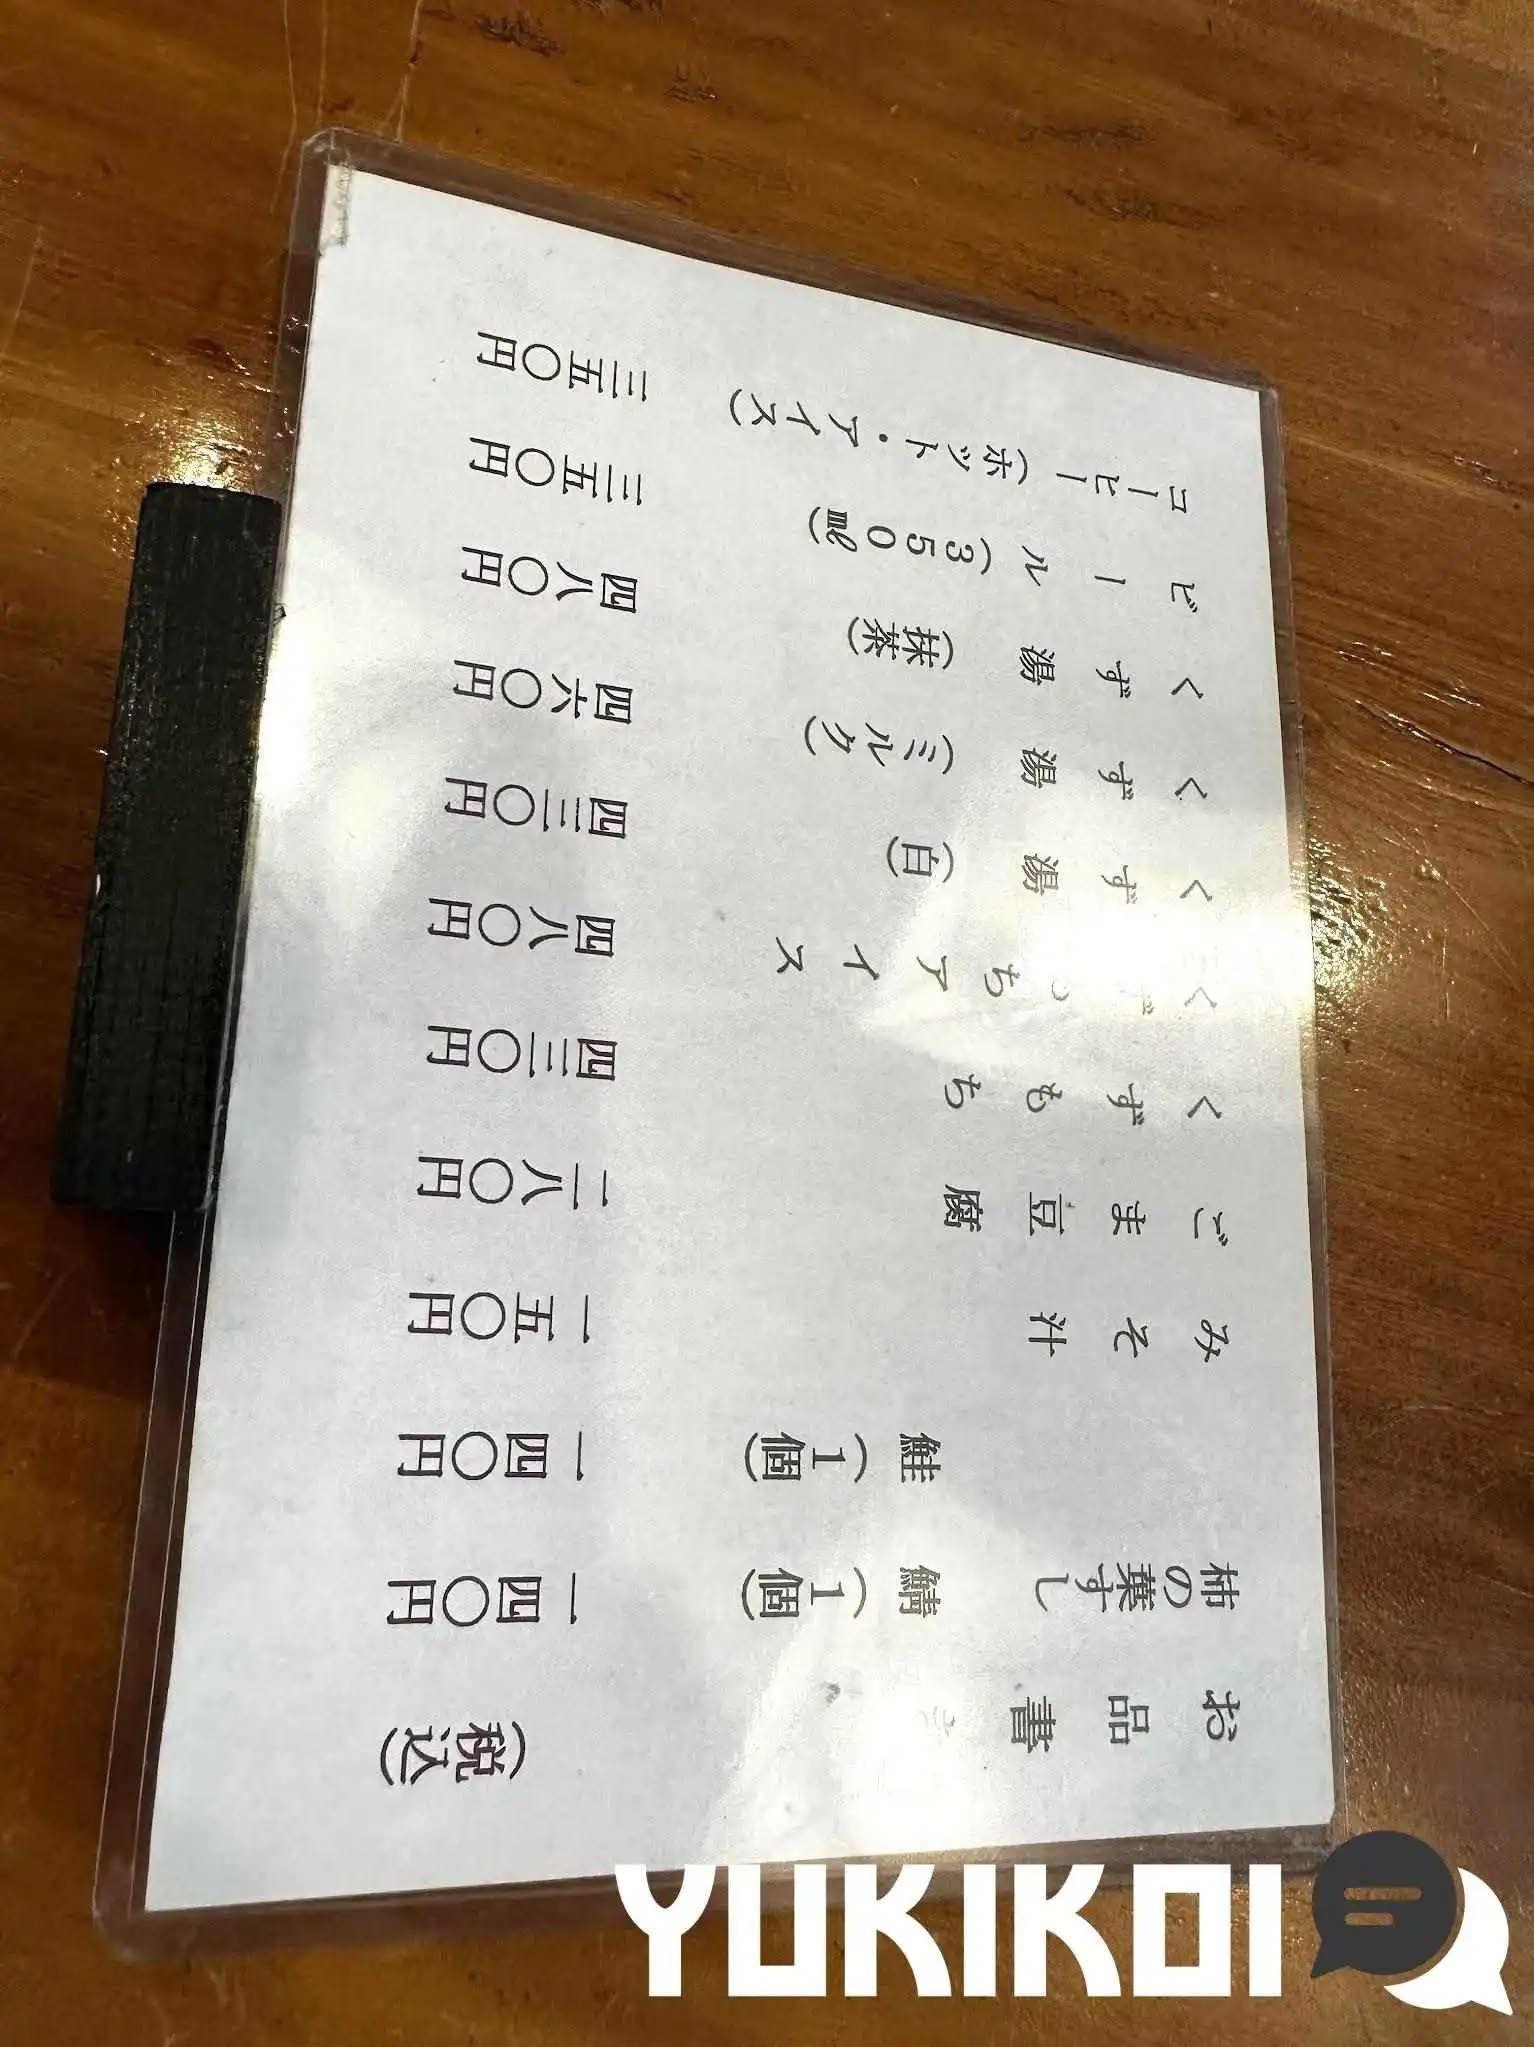 お品書き (税込)
柿の葉すし 鯖(1個) 一四〇円
鮭(1個) 一四〇円
みそ汁 一五〇円
ごま豆腐 二八〇円
くずもち 四三〇円
くずもちアイス 四八〇円
くず湯(白) 四三〇円
くず湯(ミルク) 四六〇円
くず湯(抹茶) 四八〇円
ビール(350㎖) 三五〇円
コーヒー(ホット・アイス) 三五〇円
YUKIKOI